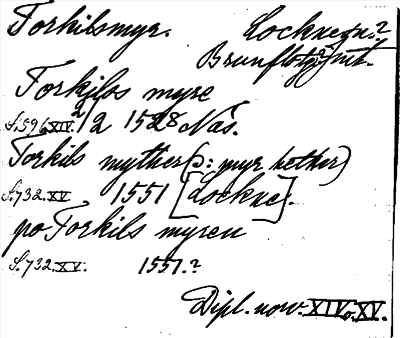 Torkilsmyr. Lockne sn.?
Brunflo tg. Jmt.
Torkilss myre
S. 596 XIV. 2/2 1528 Näs.
Torkils myther (ɔ: myr hether)
S. 732. XV. 1551 [Lockne].
po Torkils myren
S. 732. XV. 1551.?
Dipl. norv. XIV o. XV.